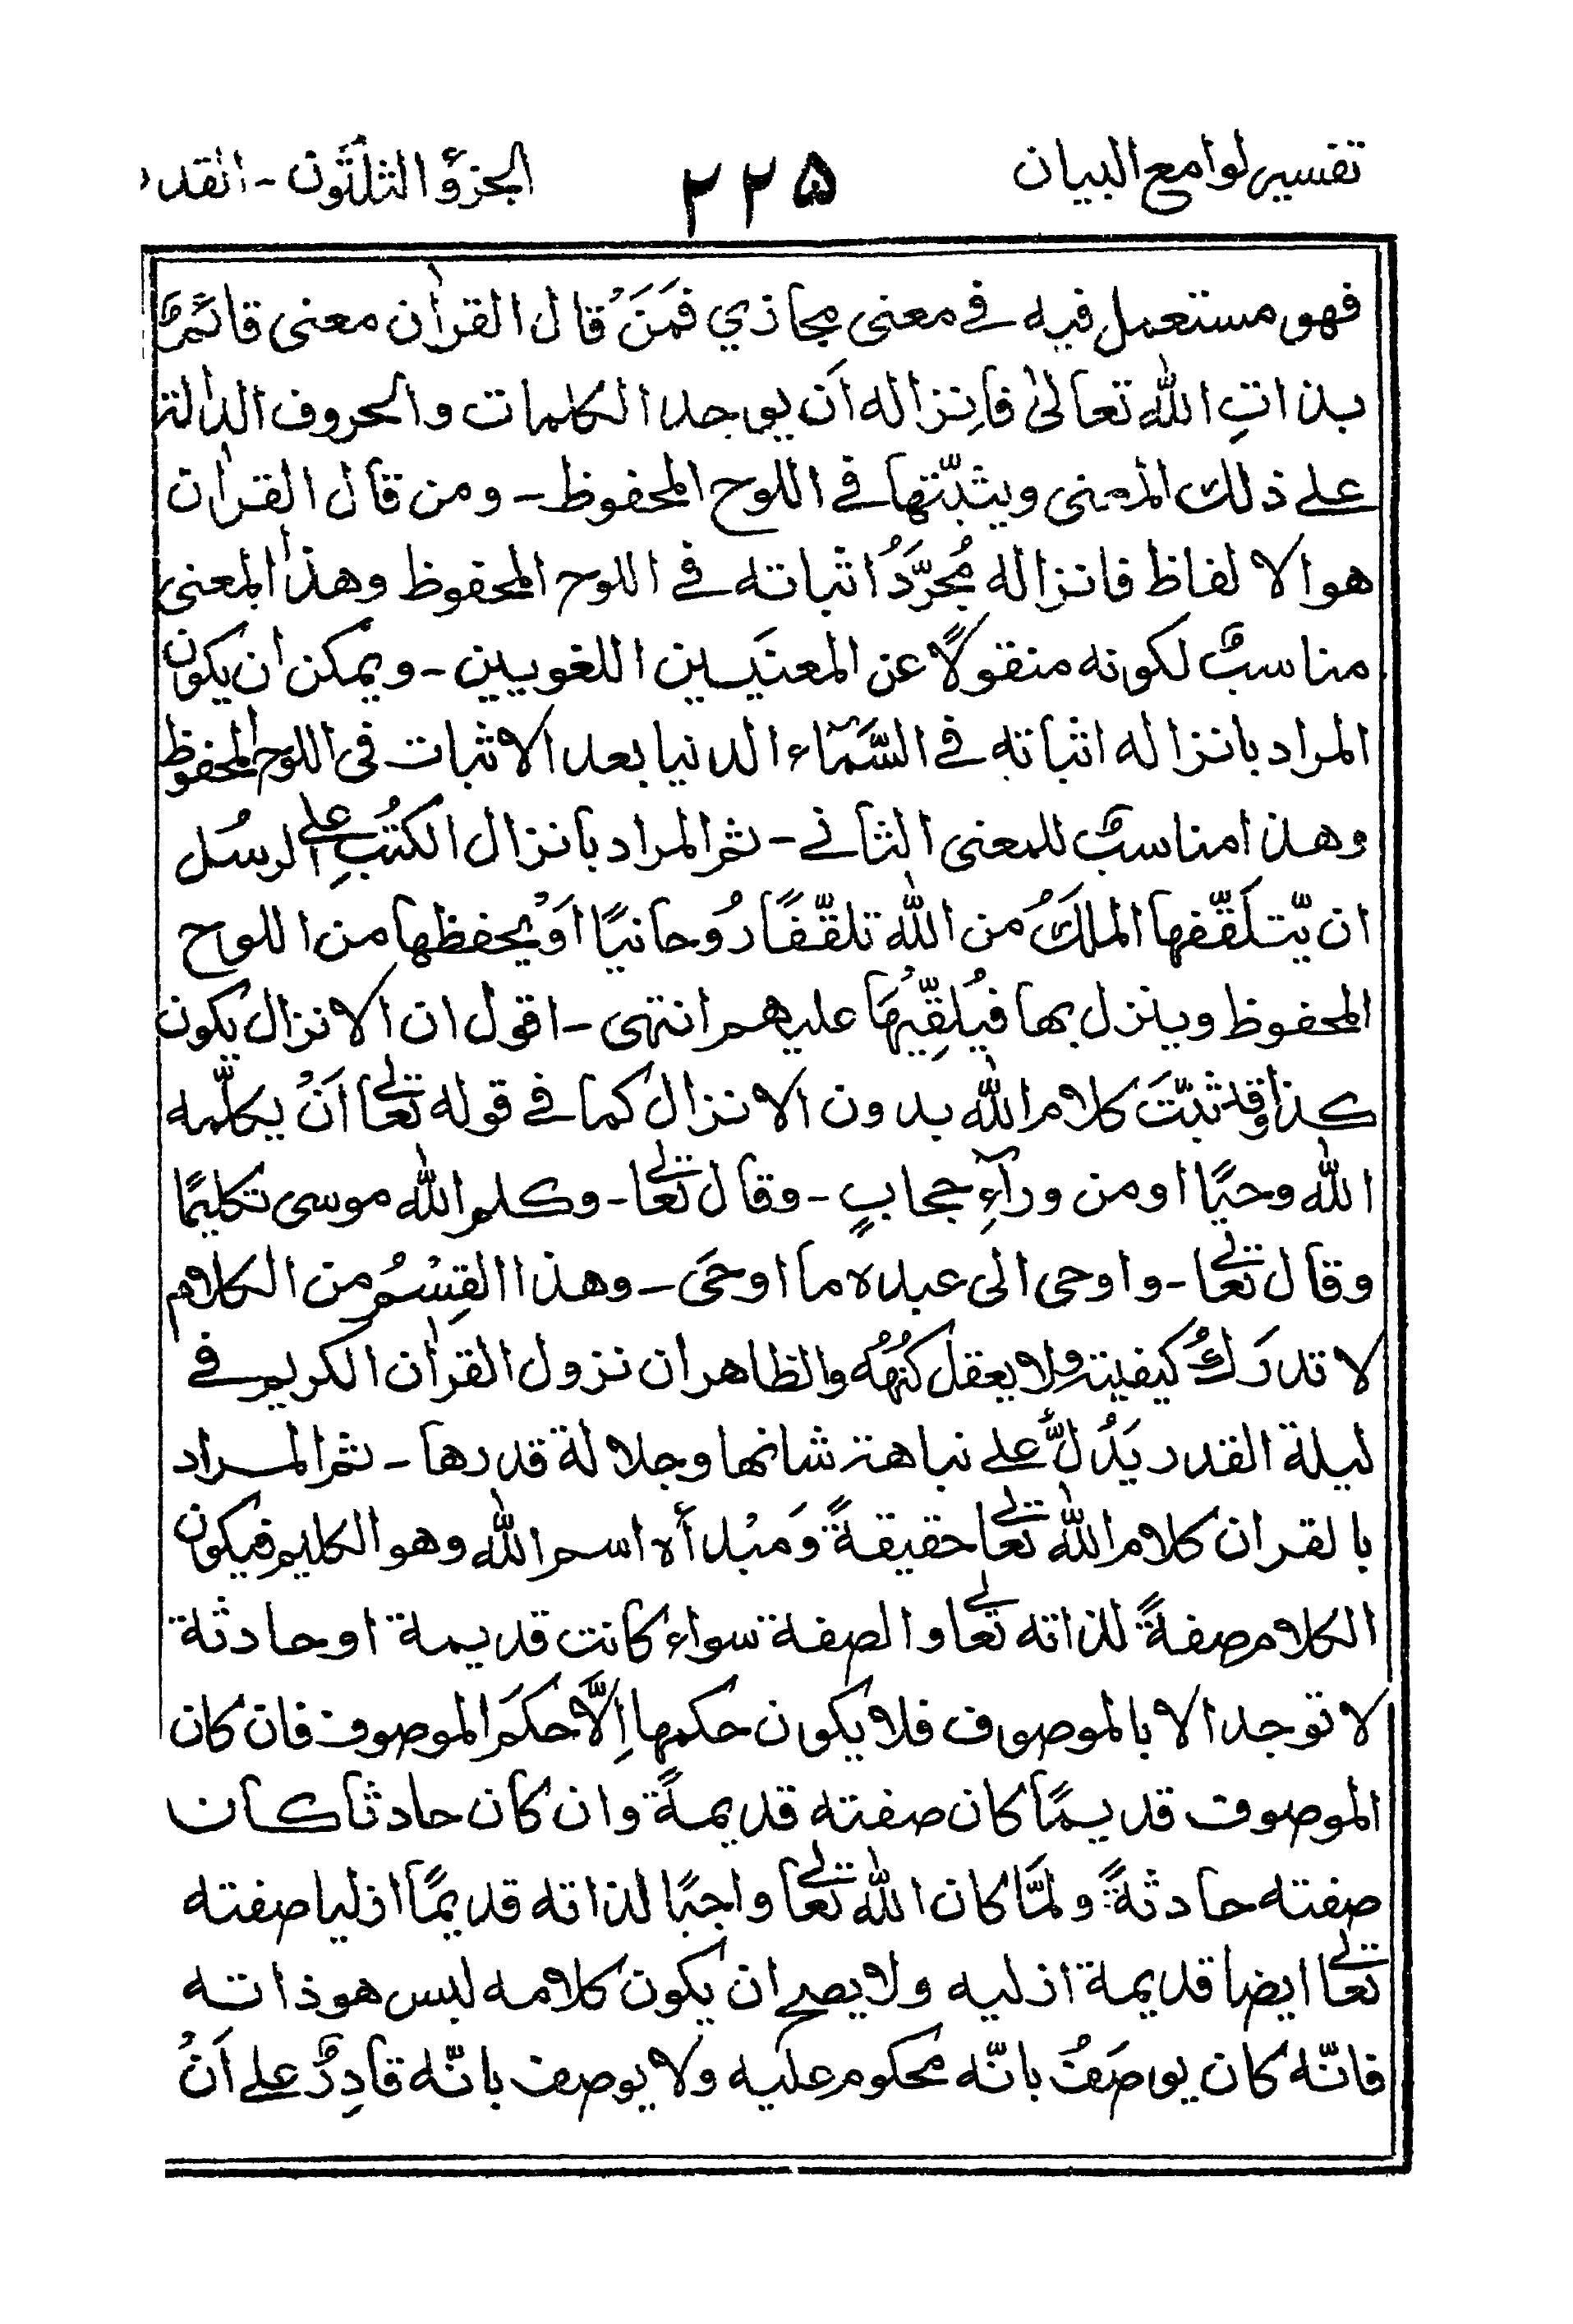 تفسير لوامع البيان ٢٢٥ الجزؤ الثلثون - القدر
فهو مستعمل فيه في معنى مجازي فَمَنْ قال القراٰن معنى قائمٌ
بذاتِ اللّٰه تعالىٰ فاِنزاله اَن يوجد الكلمات والحروف الدالة
على ذلك المعنى ويثبّتها في اللوح المحفوظ - ومن قال القراٰن
هو الالفاظ فانزاله مُجرَّدُ اثباته في اللوح المحفوظ وهذا المعنى
مناسبٌ لكونه منقولًا عن المعنَيَين اللغويين - ويمكن ان يكون
المراد بانزاله اثباته في السَّمَآء الدنيا بعد الاثبات في اللوح المحفوظ
وهذا مناسبٌ للمعنى الثاني - ثم المراد بانزال الكتُبِ على الرسُل
ان يّتلَقّفها الملكُ من اللّٰه تلقّفًا رُوحانيًا اَوْ يحفظها من اللوح
المحفوظ وينزل بها فيُلقِّيْهَا عليهم انتهى - اقول ان الانزال يكون
كذا وقد ثبّتَ كلام اللّٰه بدون الانزال كما في قوله تعالى اَنْ يكلّمه
اللّٰه وحيًا او من ورآءِ حجابٍ - وقال تعالى - وكلم اللّٰه موسى تكليمًا
وقال تعالى - واوحى الى عبده ما اوحَى - وهذا القِسْمُ من الكلام
لا تدرَكُ كيفيته ولا يعقل كُنْهُه والظاهر ان نزول القراٰن الكريم في
ليلة القدر يَدُلُّ على نباهة شانها وجلالة قدرها - ثم المراد
بالقران كلام اللّٰه تعالى حقيقةً وَمَبْدأه اسم اللّٰه وهو الكليم فيكون
الكلام صفةً لذاته تعالى والصفة سواء كانت قديمة او حادثة
لا توجد الا بالموصوف فلا يكون حكمها اِلَّا حكمَ الموصوف فان كان
الموصوف قديمًا كان صفته قديمةً وان كان حادثا كان
صفته حادثةً ولمَّا كان اللّٰه تعالى واجبًا لذاته قديمًا ازليا صفته
تعالى ايضا قديمة ازليه ولا يصح ان يكون كلامه ليس هو ذاته
فانّه كان يوصَفُ بانّه محكوم عليه ولا يوصف بانّه قادِرٌ على اَنْ